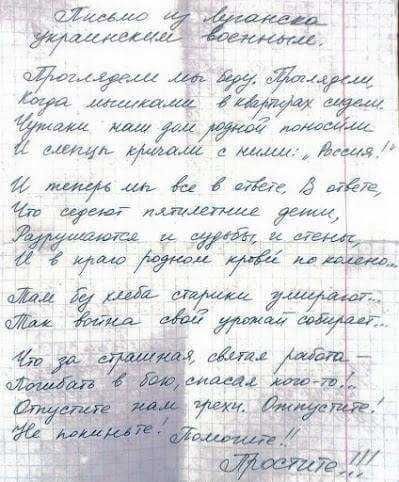 Письмо из Луганска
украинским военным.
Проглядели мы беду. Проглядели,
Когда мышками в квартирах сидели.
Чужаки наш дом родной поносили
И слепцы кричали с ними: „Россия!"
И теперь мы все в ответе, В ответе,
Что седеют пятилетние дети,
Разрушаются и судьбы, и стены,
И в краю родном крови по колено...
Там без хлеба старики умирают...
Так война свой урожай собирает...
Что за страшная, святая работа –
Погибать в бою, спасая кого-то!..
Отпустите нам грехи. Отпустите!
Не покиньте! Помогите!!
Простите!!!